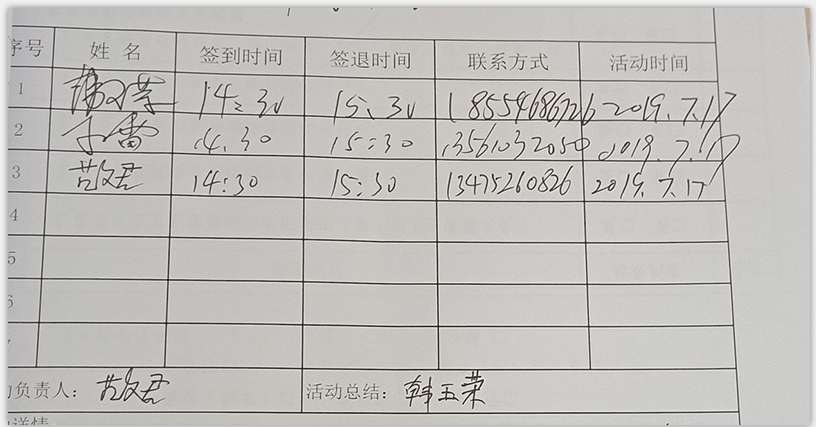 序号 姓名 签到时间 签退时间 联系方式 活动时间
1 14:30 15:30 18554686726 2019.7.17
2 于雷 14.30 15:30 13561032050 2019.7.17
3 苗政君 14:30 15:30 13475260826 2019.7.17
4
5
6
7
负责人: 苗政君 活动总结: 韩玉荣